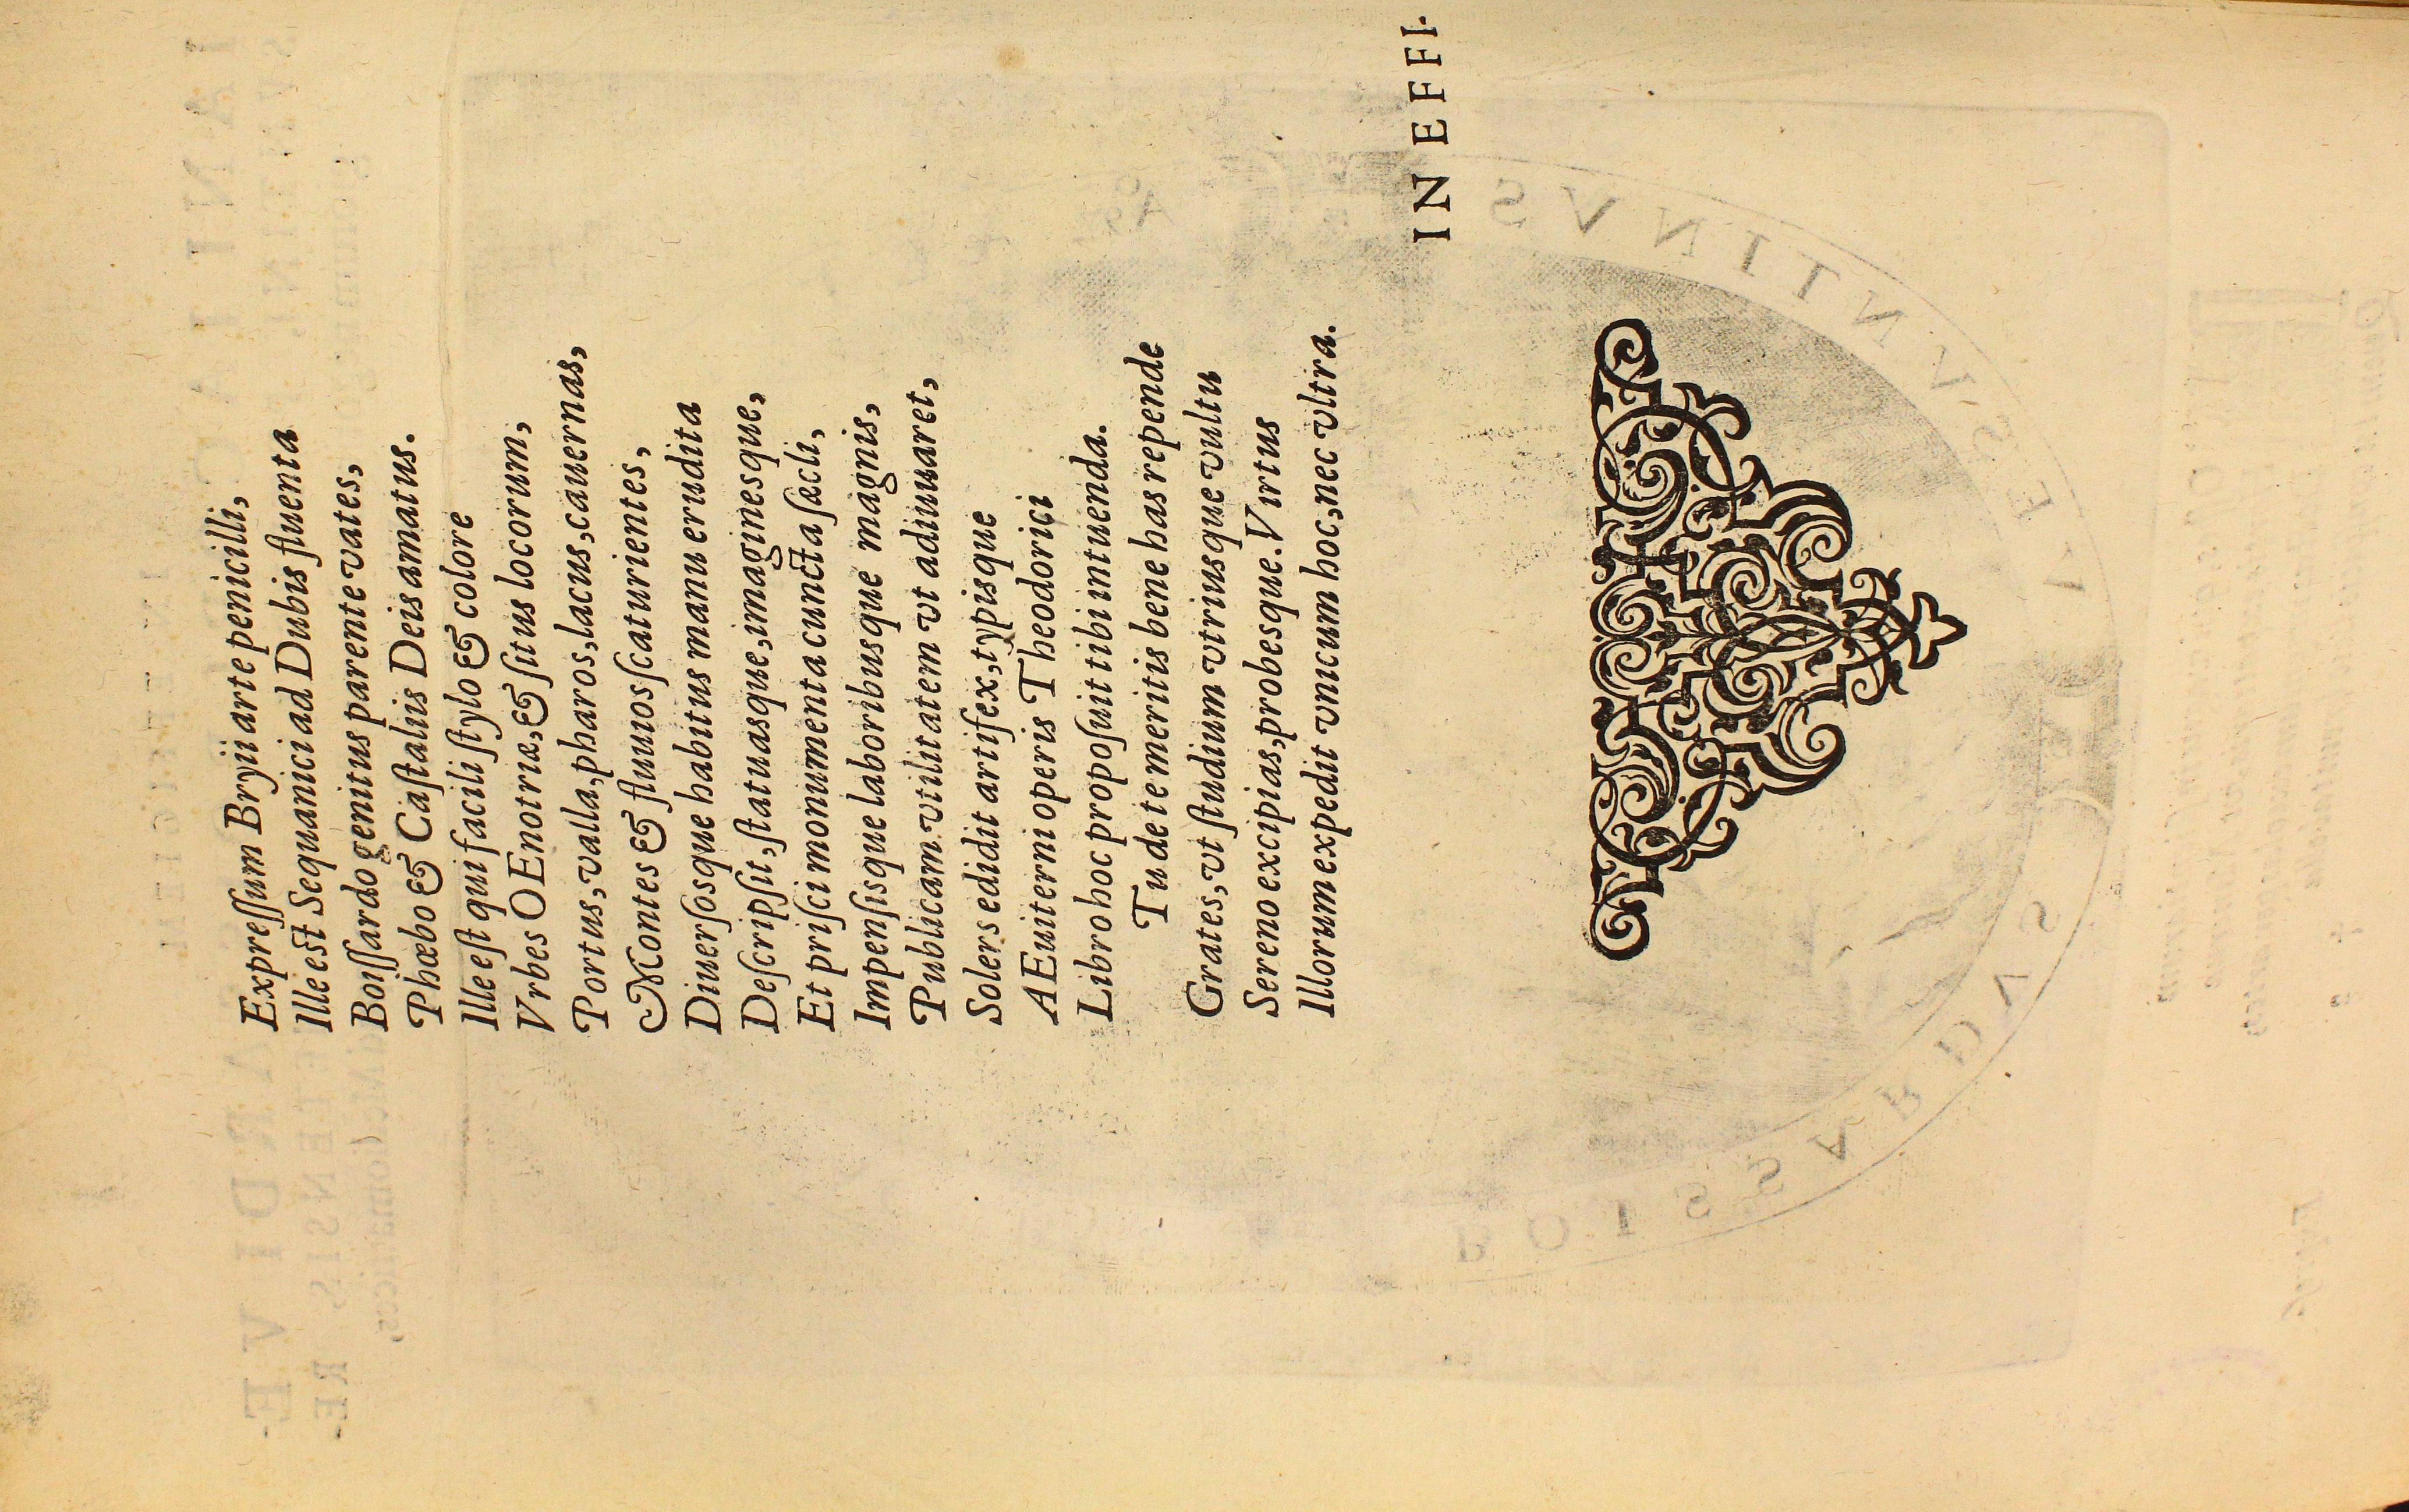 Expreſſum Bryii arte penicilli,
Ille est Sequanici ad Dubis fluenta
Boiſſardo genitus parente vates,
Phœbo & Caſtaliis Deis amatus.
Ille eſt qui facili ſtylo & colore
Vrbes OEnotriæ, & ſitus locorum,
Portus, valla, pharos, lacus, cauernas,
Montes & fluuios ſcaturientes,
Diuerſosque habitus manu erudita
Deſcripſit, ſtatuasque, imaginesque,
Et priſci monumenta cuncta ſæcli,
Impenſisque laboribusque magnis,
Publicam vtilitatem vt adiuuaret,
Solers edidit artifex, typisque
AEuiterni operis Theodorici
Libro hoc propoſuit tibi intuenda.
Tu de te meritis bene has repende
Grates, vt ſtudium vtriusque vultu
Sereno excipias, probesque. Virtus
Illorum expedit vnicum hoc, nec vltra.
IN EFFI-